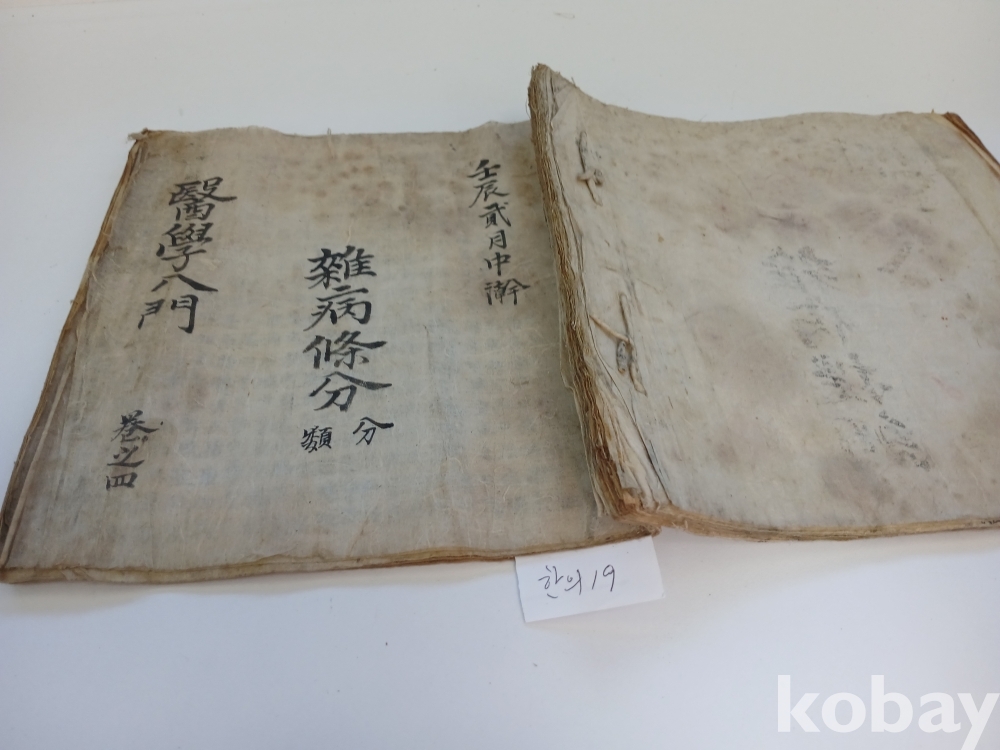 壬辰貳月中澣
雜病條分
分類
醫學八門
卷之四
한의19
kobay